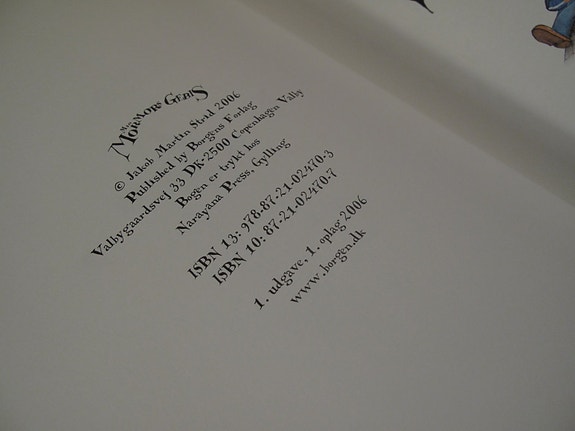 Min
Mormors Gebis
© Jakob Martin Strid 2006
Published by Borgens Forlag
Valbygaardsvej 33 DK-2500 Copenhagen Valby
Bogen er trykt hos
Narayana Press, Gylling
ISBN 13: 978-87-21-02470-3
ISBN 10: 87-21-02470-7
1. udgave, 1. oplag 2006
www.borgen.dk